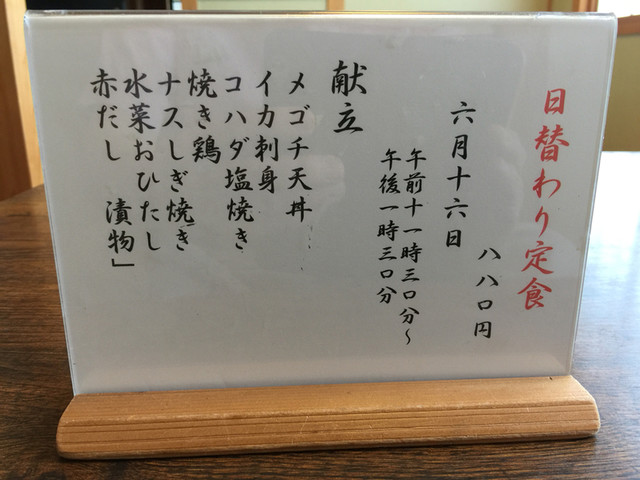 日替わり定食
八八〇円
六月十六日
午前十一時三〇分～
午後一時三〇分
献立
メゴチ天丼
イカ刺身
コハダ塩焼き
焼き鶏
ナスしぎ焼き
水菜おひたし
赤だし 漬物」